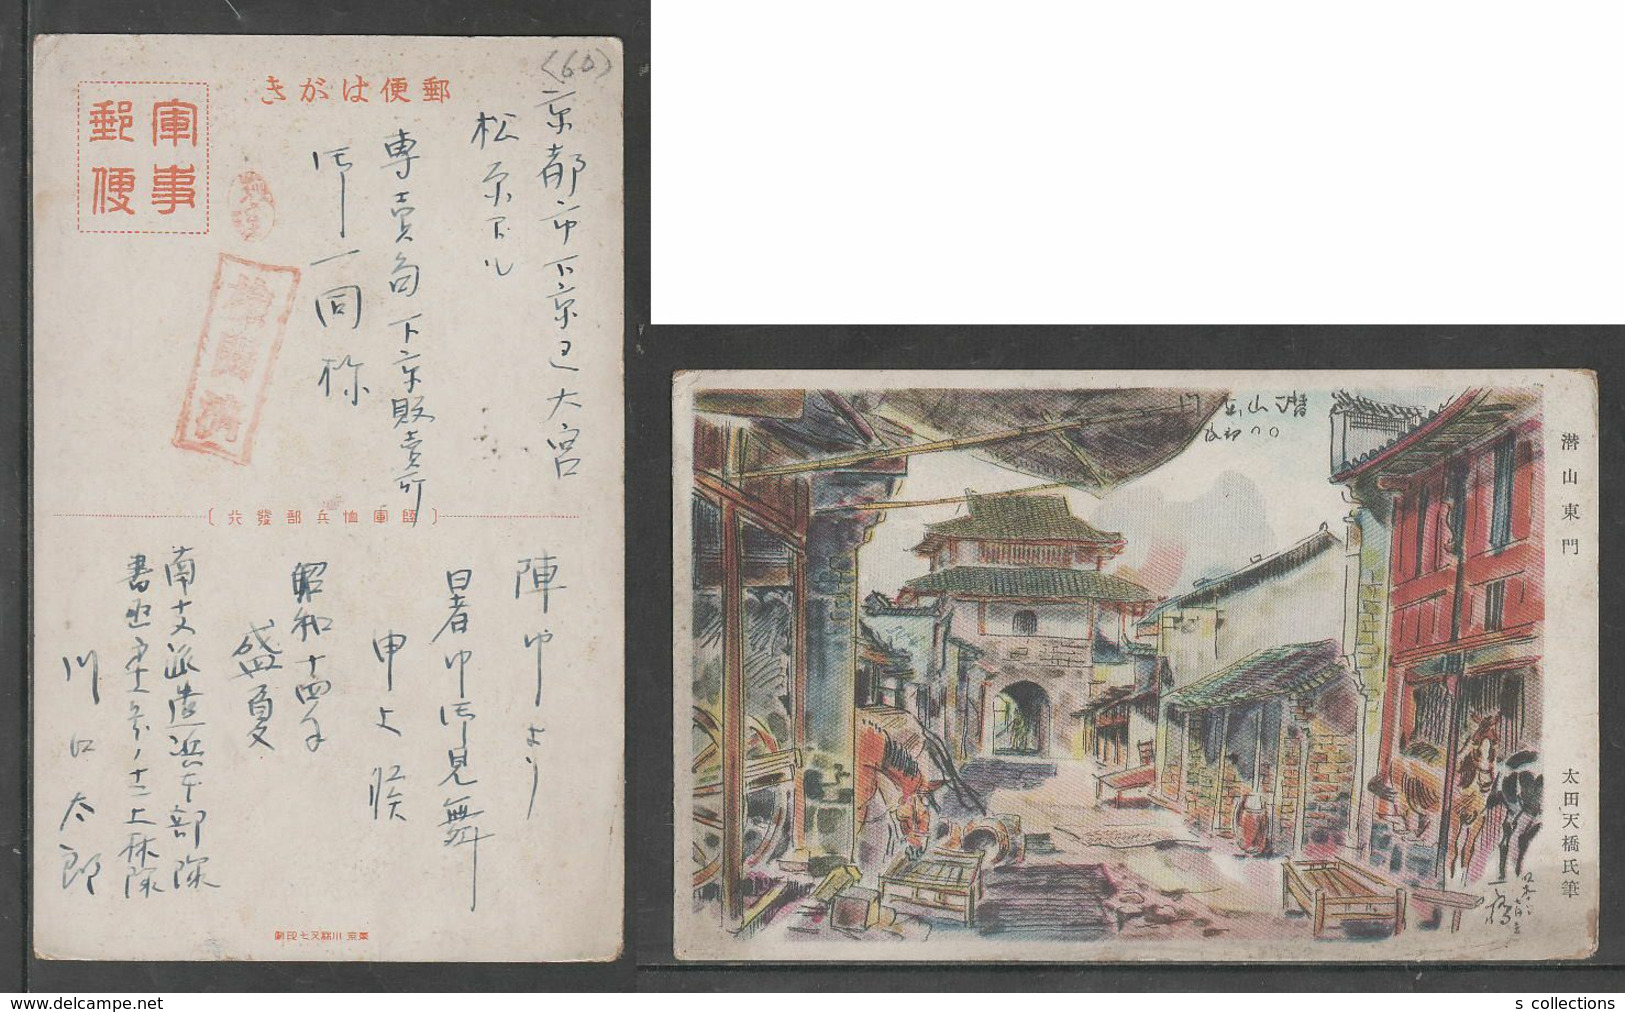 (60)
郵便はがき
軍事
郵便
検閲済
京都市下京区大宮
松原下ル
専賣局下京販賣所
御一同様
陸軍恤兵部發行
陣中より
暑中御見舞
申上候
昭和十四年
盛夏
南支派遣浜本部隊
川口太郎
東京 川瀬又七印刷
潜山東門
太田天橋氏筆
s collections